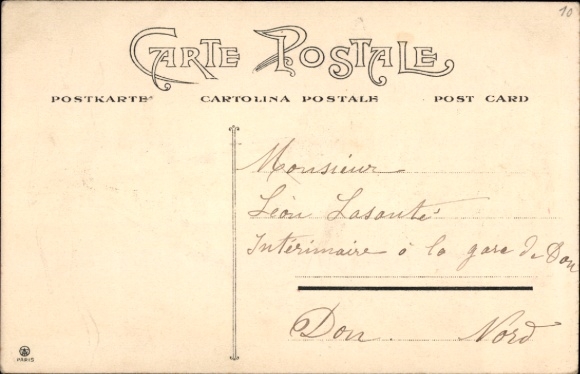 10
CARTE POSTALE
POSTKARTE CARTOLINA POSTALE POST CARD
Monsieur
Léon Lasante
Intérimaire à la gare de Don
Don Nord
PARIS